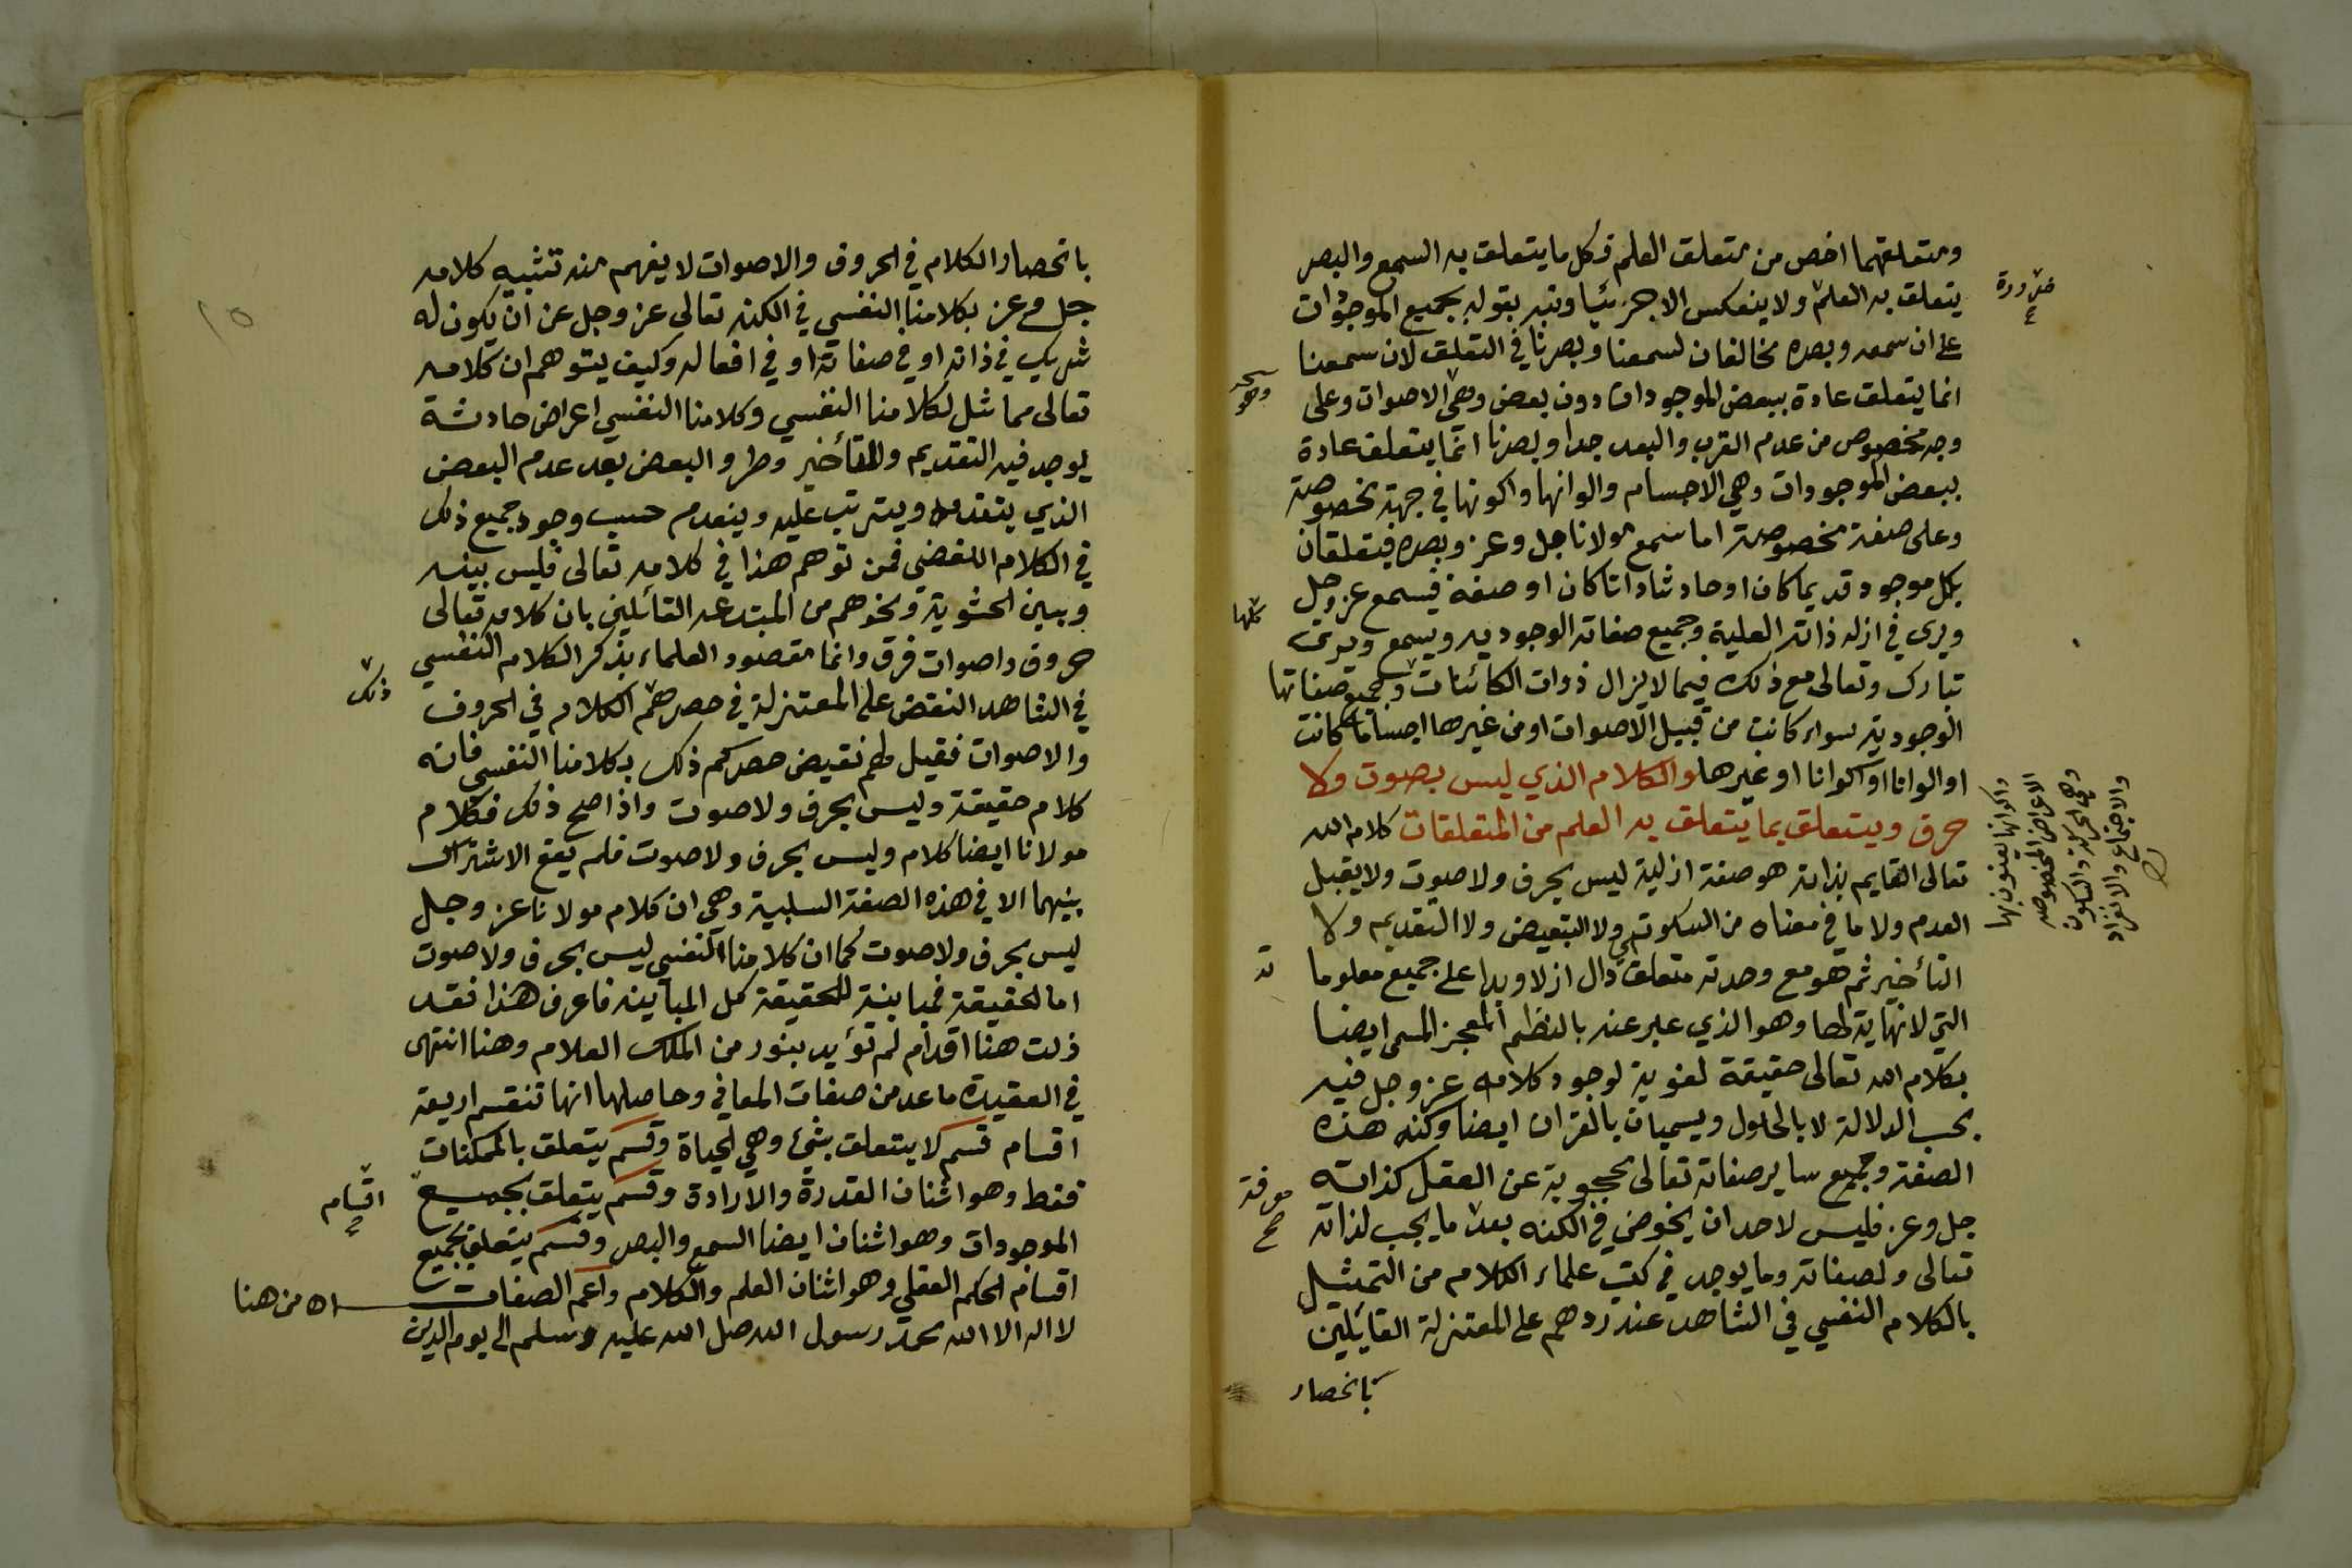 ومتعلقهما اخص من متعلق العلم فكل ما يتعلق به السمع والبصر
يتعلق به العلم ولا ينعكس الا جزئيا ونبه بقوله بجميع الموجودات
على ان سمعه وبصره مخالفان لسمعنا وبصرنا في التعلق لان سمعنا
انما يتعلق عادة ببعض الموجودات دون بعض وهي الاصوات وعلى
وجه مخصوص من عدم القرب والبعد جدا وبصرنا انما يتعلق عادة
ببعض الموجودات وهي الاجسام والوانها واكونها في جهة مخصوصة
وعلى صفة مخصوصة اما سمع مولانا جل وعز وبصره فيتعلقان
بكل موجود قديما كان او حادثا ذاتا كان او صفة فيسمع عز وجل
ويري في ازله ذاته العلية وجميع صفاته الوجوديه ويسمع ويري
تبارك وتعالى مع ذلك فيما لا يزال ذوات الكائنات وجميع صفاتها
الوجودية سواء كانت من قبيل الاصوات او من غيرها اجساما كانت
او الوانا او اكوانا او غيرها والكلام الذي ليس بصوت ولا
حرف ويتعلق بما يتعلق به العلم من المتعلقات كلام الله
تعالى القايم بذاته هو صفة ازلية ليس بحرف ولا صوت ولا يقبل
العدم ولا ما في معناه من السكوت ولا التبعيض ولا التقديم ولا
التأخير ثم هو مع وحدته متعلق دال ازلا وبدا على جميع معلوما
التي لا نهاية لها وهو الذي عبر عنه بالنظم المعجز المسمى ايضا
بكلام الله تعالى حقيقة لغوية لوجود كلامه عز وجل فيه
بحسب الدلالة لا بالحلول ويسميان بالقران ايضا وكنه هذه
الصفة وجميع ساير صفاته تعالى محجوبة عن العقل كذاته
جل وعز فليس لاحد ان يخوض في الكنه بعد ما يجب لذاته
تعالى ولصفاته وما يوجد في كتب علماء الكلام من التمثيل
بالكلام النفسي في الشاهد عند ردهم على المعتزلة القايلين
بانحصار
ضرورة
كلها
ته
معرفة
صح
واكوانها يعنون بها
الاعراض المخصوصه
وهي الحركة والسكون
والاجتماع والافتراق
بانحصار الكلام في الحروف والاصوات لا يفهم منه تشبيه كلامه
جل وعز بكلامنا النفسي في الكنه تعالى عز وجل عن ان يكون له
شريك في ذاته او في صفاته او في افعاله وكيف يتوهم ان كلامه
تعالى مماثل لكلامنا النفسي وكلامنا النفسي اعراض حادثة
يوجد فيه التقديم والتأخير وطرو البعض بعد عدم البعض
الذي يتقدمه ويترتب عليه وينعدم حسب وجود جميع ذلك
في الكلام اللفضي فمن توهم هذا في كلامه تعالى فليس بينه
وبين الحشوية ونحوهم من المبتدعه القائلين بان كلامه تعالى
حروف واصوات فرق وانما مقصود العلماء بذكر الكلام النفسي
في الشاهد النقض على المعتزلة في حصرهم الكلام في الحروف
والاصوات فقيل لهم نقيض حصركم ذلك بكلامنا النفسي فانه
كلام حقيقة وليس بحرف ولا صوت واذا صح ذلك فكلام
مولانا ايضا كلام وليس بحرف ولا صوت فلم يقع الاشتراك
بينهما الا في هذه الصفة السلبية وهي ان كلام مولانا عز وجل
ليس بحرف ولا صوت كما ان كلامنا النفسي ليس بحرف ولا صوت
اما الحقيقة فمباينة للحقيقة كل المباينه فاعرف هذا فقد
زلت هنا اقدام لم تؤيد بنور من الملك العلام وهنا انتهى
في العقيدة ما عد من صفات المعاني وحاصلها انها تنقسم اربعة
اقسام قسم لا يتعلق بشيء وهي الحياة وقسم يتعلق بالممكنات
فقط وهو اثنان القدرة والارادة وقسم يتعلق بجميع
الموجودات وهو اثنان ايضا السمع والبصر وقسم يتعلق بجميع
اقسام الحكم العقلي وهو اثنان العلم والكلام واعم الصفات
لا اله الا الله محمد رسول الله صلى الله عليه وسلم الى يوم الدين
ذلك
اقسام
اه من هنا